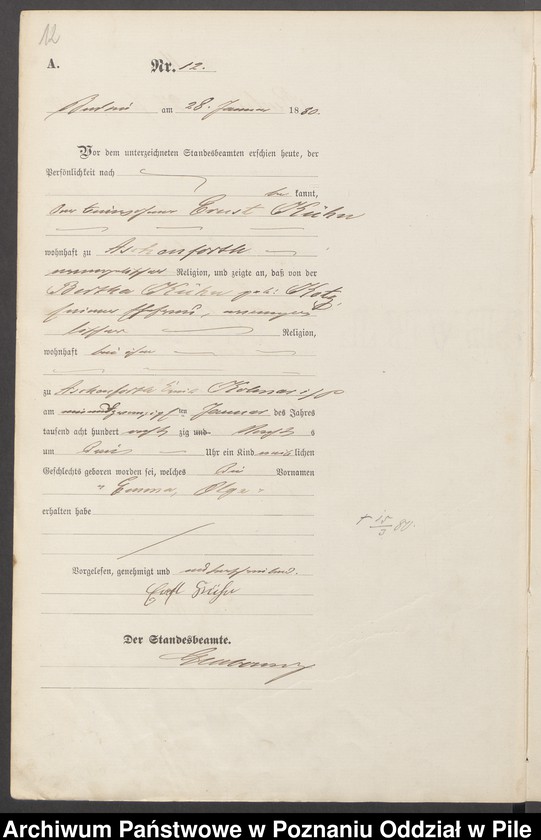 12
A.
Nr. 12.
am 28. Januar 1880.
Vor dem unterzeichneten Standesbeamten erschien heute, der
Persönlichkeit nach
be kannt,
der Ernst Kühn
wohnhaft zu Aschenforth
evangelischer Religion, und zeigte an, daß von der
Bertha Kühn geb:
seiner Ehefrau, evange
lischer Religion,
wohnhaft bei ihm
zu Aschenforth Kreis Kolmar i/P
am Januar des Jahres
tausend acht hundert acht zig und s
um Uhr ein Kind weib lichen
Geschlechts geboren worden sei, welches die Vornamen
" Emma, Olga "
erhalten habe
† 15/3 80.
Vorgelesen, genehmigt und unterschrieben.
Kühn
Der Standesbeamte.
Archiwum Państwowe w Poznaniu Oddział w Pile